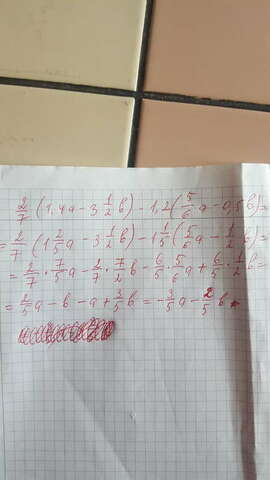 2/7 (1,4a - 3 1/2 b) - 1,2 (5/6 a - 0,5b) =
= 2/7 (1 2/5 a - 3 1/2 b) - 1 1/5 (5/6 a - 1/2 b) =
= 2/7 · 7/5 a - 2/7 · 7/2 b - 6/5 · 5/6 a + 6/5 · 1/2 b =
= 2/5 a - b - a + 3/5 b = - 3/5 a - 2/5 b.